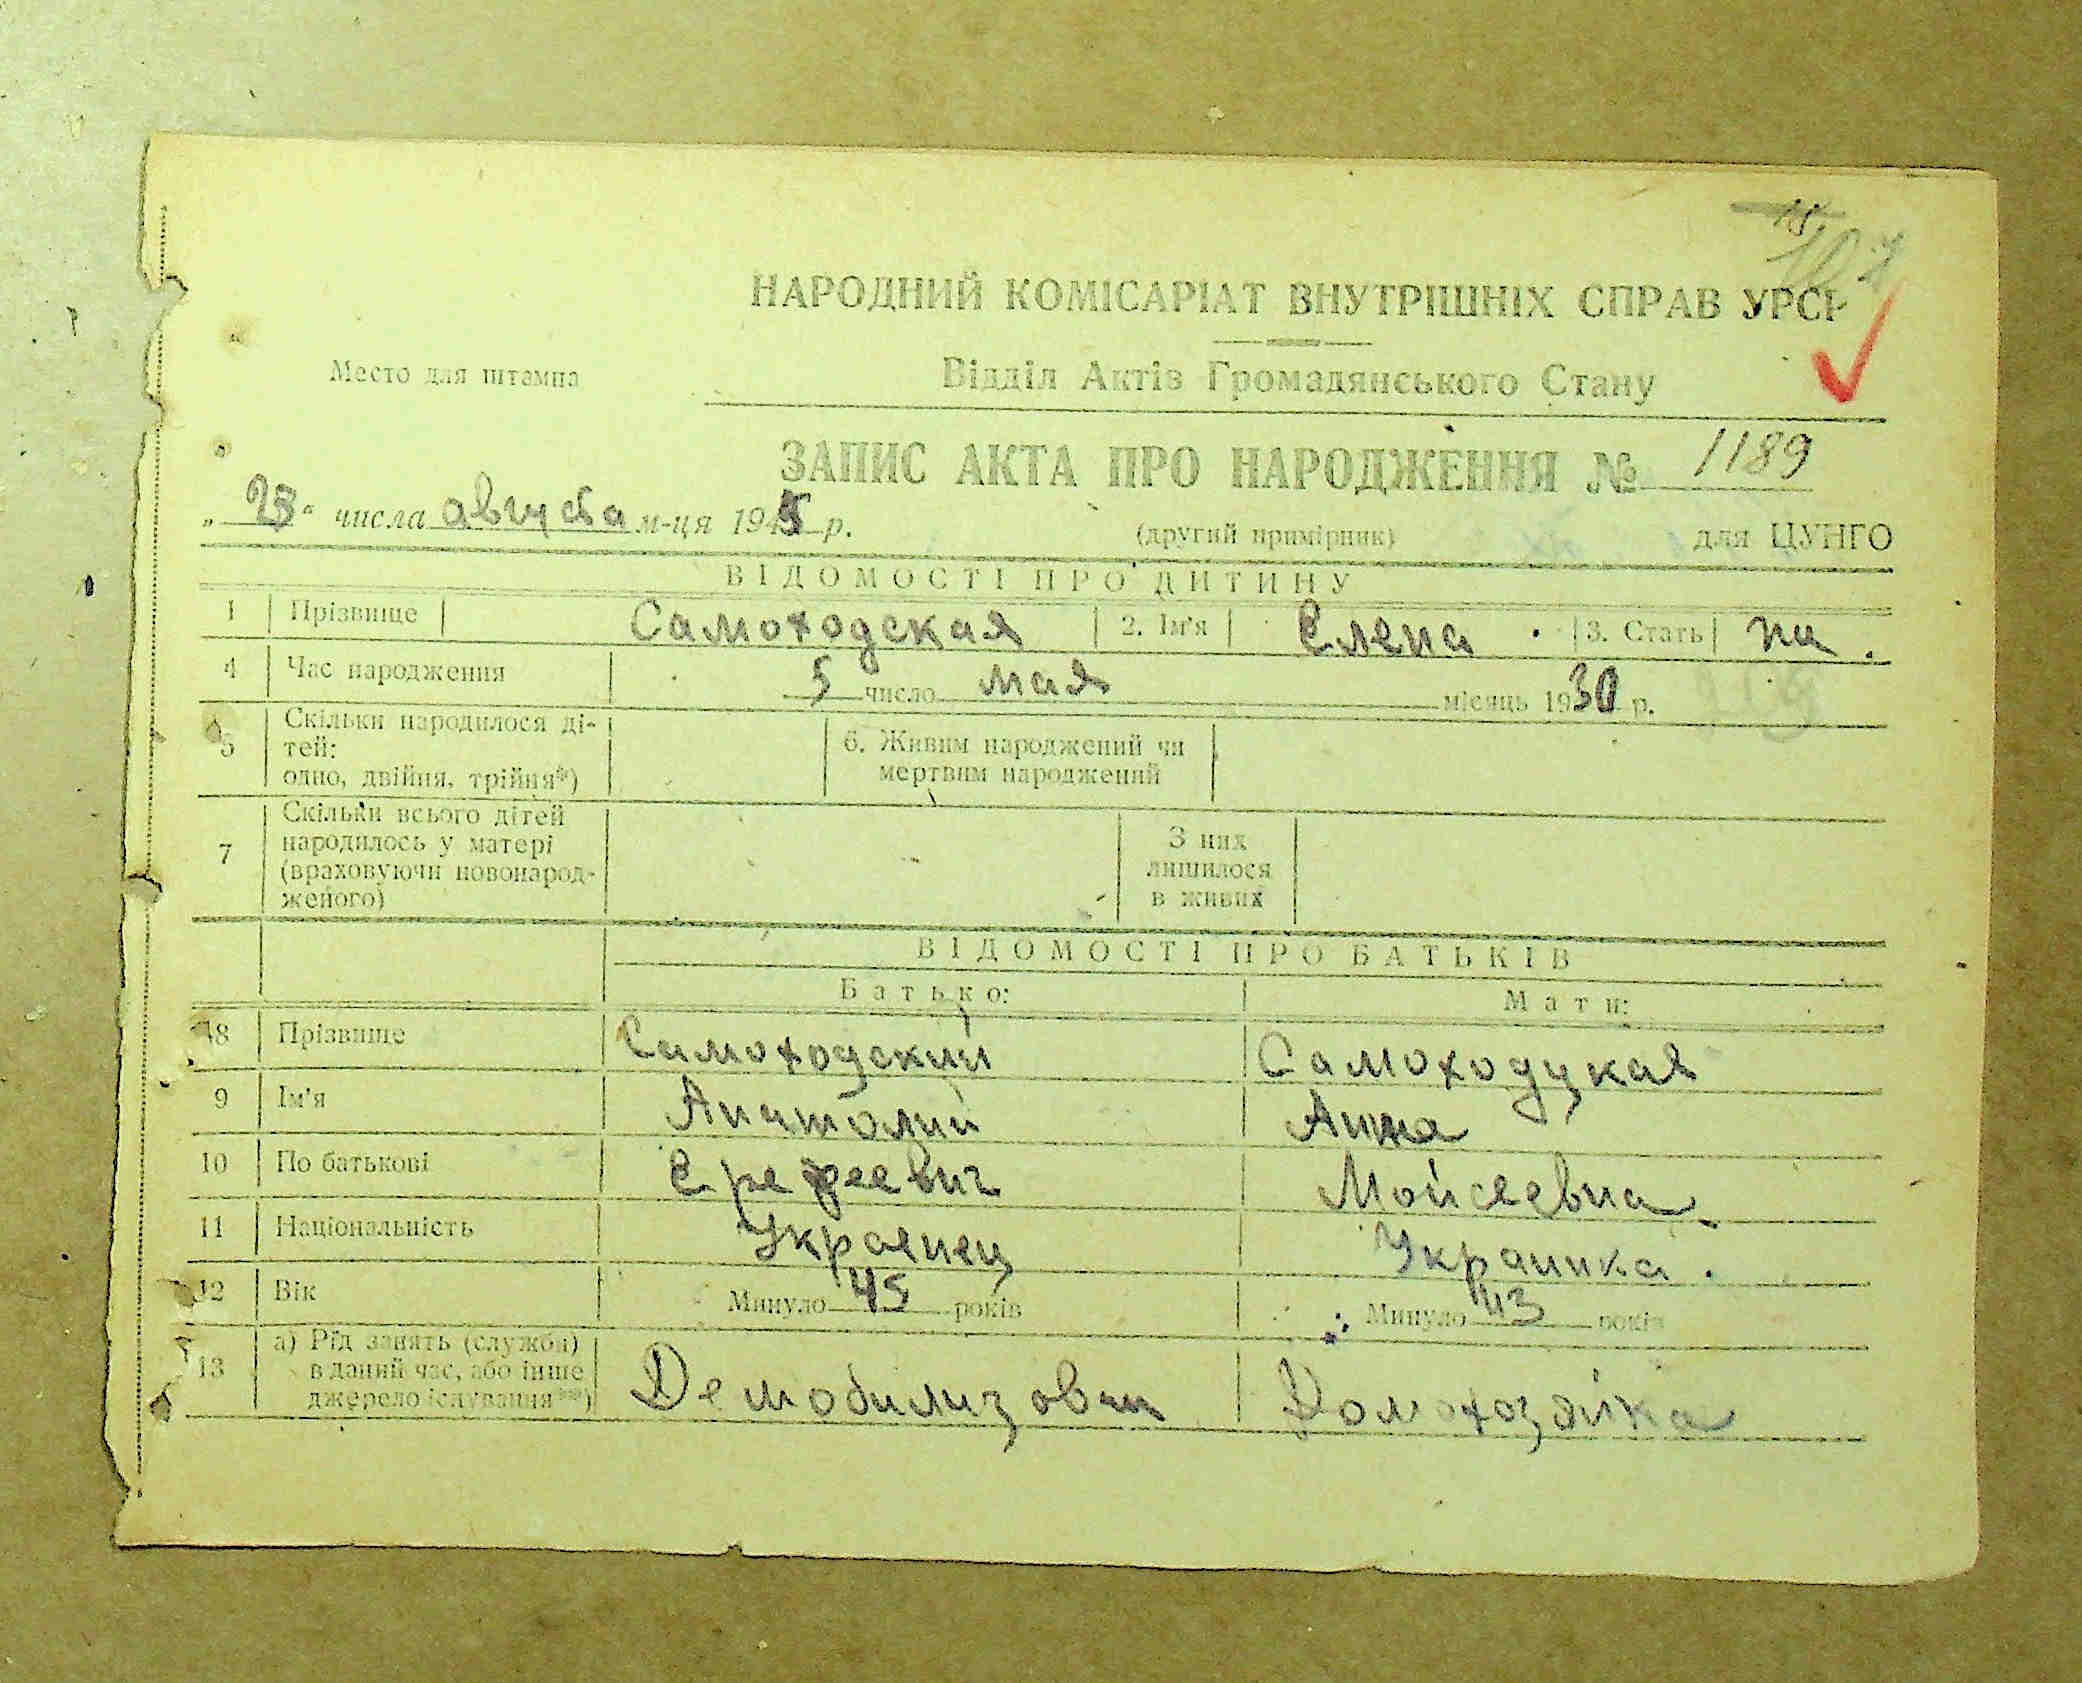 15
НАРОДНИЙ КОМІСАРІАТ ВНУТРІШНІХ СПРАВ УРСР
Место для штампа
Відділ Актів Громадянського Стану
ЗАПИС АКТА ПРО НАРОДЖЕННЯ № 1189
„23“ числа августа м-ця 1945 р.
(другий примірник) для ЦУНГО
ВІДОМОСТІ ПРО ДИТИНУ
1 Прізвище Самоходская 2. Ім'я Елена 3. Стать
4 Час народження 5 число мая місяць 1930 р.
5 Скільки народилося ді-
тей:
одно, двійня, трійня*)
6. Живим народжений чи
мертвим народжений
7 Скільки всього дітей
народилось у матері
(враховуючи новонарод-
женого)
З них
лишилося
в живих
ВІДОМОСТІ ПРО БАТЬКІВ
Батько: Мати:
8 Прізвище Самоходский Самоходукая
9 Ім'я Анатолий Анна
10 По батькові Ерефеевич Мойсеевна
11 Національність Украенец Украинка.
12 Вік Минуло 45 років Минуло 43 років
13 а) Рід занять (служби)
в даний час, або інше
джерело існування**)
Демобилизован Домохозяйка